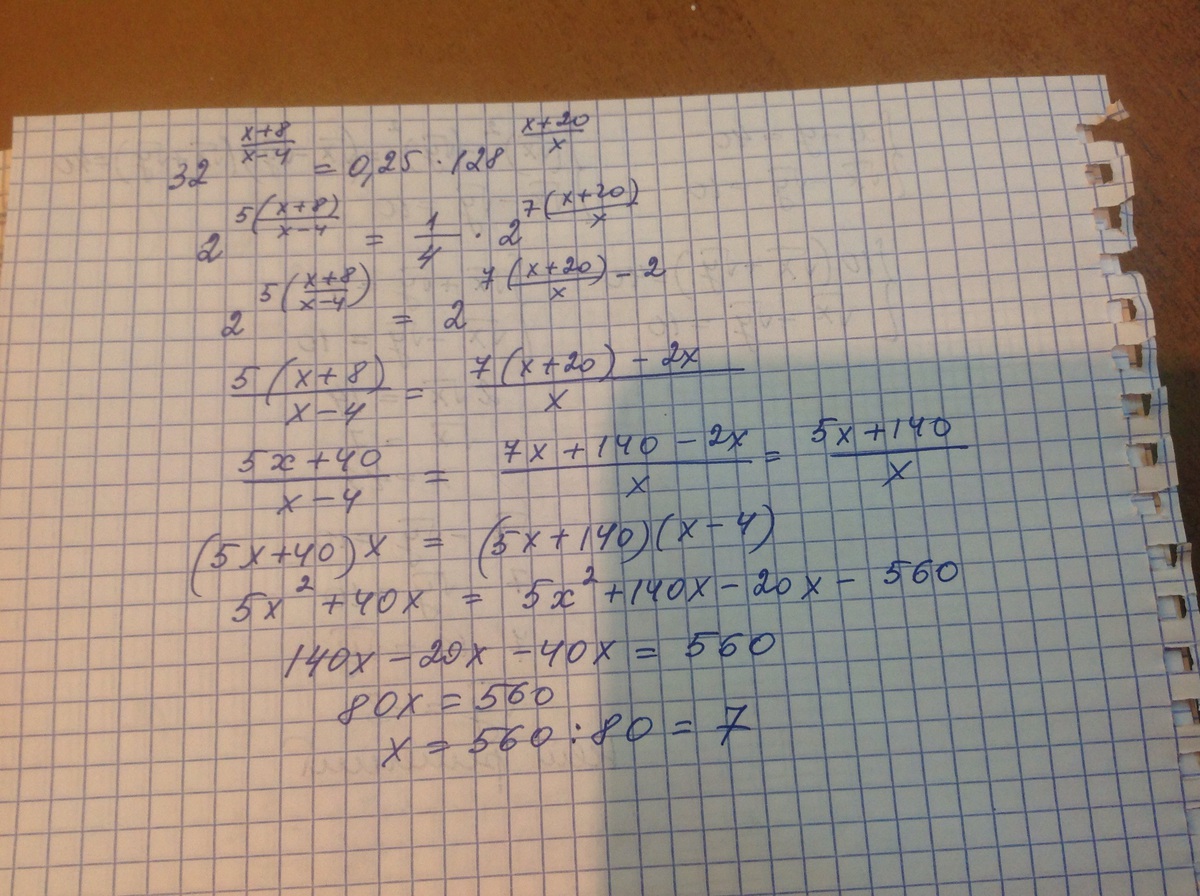 32^((x+8)/(x-4)) = 0,25 · 128^((x+20)/x)
2^(5((x+8)/(x-4))) = 1/4 · 2^(7((x+20)/x))
2^(5((x+8)/(x-4))) = 2^(7((x+20)/x) - 2)
5(x+8)/(x-4) = (7(x+20) - 2x)/x
(5x+40)/(x-4) = (7x+140-2x)/x = (5x+140)/x
(5x+40)x = (5x+140)(x-4)
5x²+40x = 5x²+140x-20x-560
140x-20x-40x = 560
80x = 560
x = 560:80 = 7